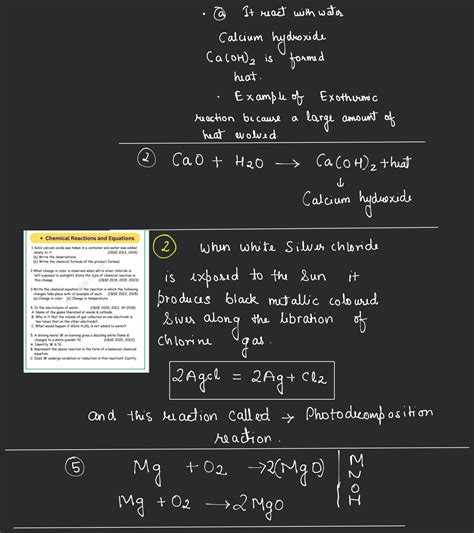 . ⓐ It react with water
Calcium hydroxide
Ca(OH)2 is formed
heat.
. Example of Exothermic
reaction because a large amount of
heat evolved
② CaO + H2O → Ca(OH)2 + heat
↓
Calcium hydroxide
• Chemical Reactions and Equations
1. Solid calcium oxide was taken in a container and water was added
slowly to it. (CBSE 2013, 2019)
(a) Write the observations.
(b) Write the chemical formula of the product formed.
2. What change in color is observed when white silver chloride is
left exposed to sunlight? State the type of chemical reaction in
this change. (CBSE 2014, 2019, 2023)
3. Write the chemical equation of the reaction in which the following
changes take place with an example of each.
(a) Change in color (b) Change in temperature
4. In the electrolysis of water.
A. Name of the gases liberated at anode & cathode.
B. Why is it that the volume of gas collected on one electrode is
two times that on the other electrode?
C. What would happen if dilute H2SO4 is not added to water?
5. A shining metal 'M' on burning gives a dazzling white flame &
changes to a white powder 'N'. (CBSE 2020, 2023)
A. Identify 'M' & 'N'.
B. Represent the above reaction in the form of a balanced chemical
equation.
C. Does 'M' undergo oxidation or reduction in this reaction? Justify.
② When white Silver chloride
is exposed to the Sun it
produces black metallic coloured
Siver along the libration of
chlorine gas.
2Agcl = 2Ag + Cl2
and this reaction called → Photodecomposition
reaction.
⑤ Mg + O2 → 2(MgO)
Mg + O2 → 2MgO
M
N
O
H